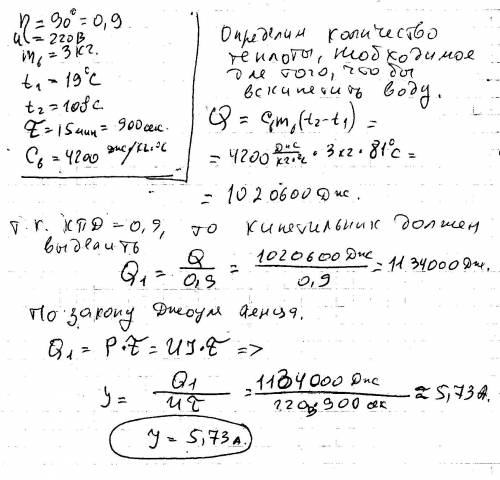 η = 90° = 0,9
U = 220В
mв = 3 кг.
t₁ = 19°C
t₂ = 108с
τ = 15 мин = 900 сек.
Cв = 4200 Дж/кг·°C
Определим количество
теплоты, необходимое
для того, что бы
вскипетить воду.
Q = Cвmв(t₂-t₁) =
= 4200 Дж/кг·°C · 3 кг · 81°C =
= 1020600 Дж.
т.к. КПД = 0,9, то кипетильник должен
выделить
Q₁ = Q/0,9 = 1020600 Дж/0,9 = 1134000 Дж.
По закону Джоуля Ленца.
Q₁ = P·τ = UI·τ =>
У = Q₁/Uτ = 1134000 Дж/220в 900 сек ≈ 5,73 А.
У = 5,73 А.